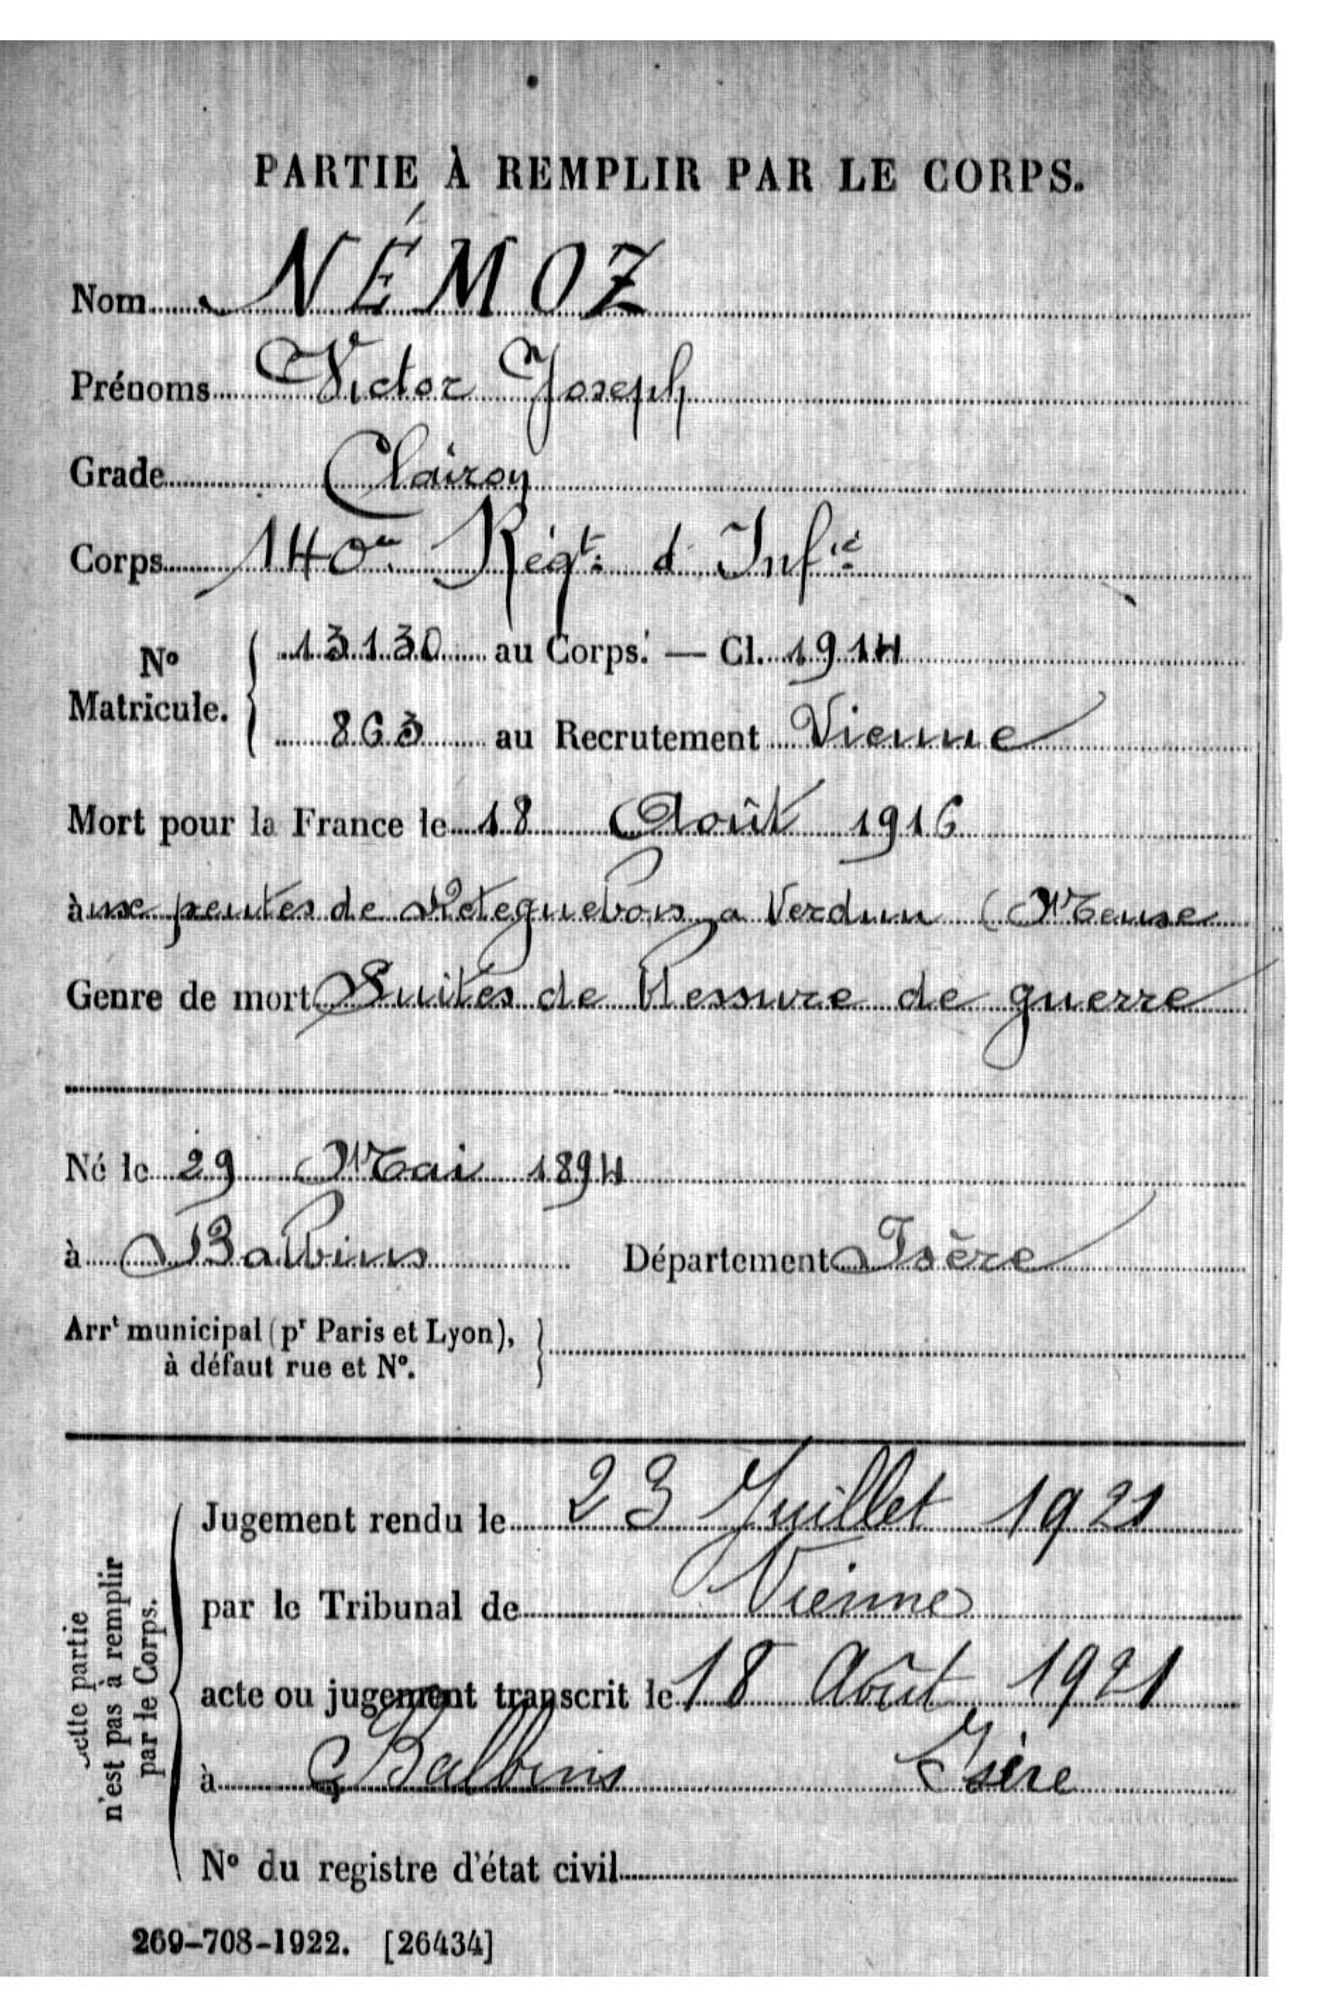 PARTIE À REMPLIR PAR LE CORPS.
Nom NÉMOZ
Prénoms Victor Joseph
Grade Clairon
Corps 140me Régt. d Infie
No Matricule. 13130 au Corps. — Cl. 1914
863 au Recrutement Vienne
Mort pour la France le 18 Août 1916
à ux pentes de Reteguebois a Verdun (Meuse
Genre de mort Suites de blessure de guerre
Né le 29 Mai 1894
à Balbins Département Isère
Arrt municipal (pr Paris et Lyon),
à défaut rue et No.
Cette partie
n'est pas à remplir
par le Corps.
Jugement rendu le 23 Juillet 1921
par le Tribunal de Vienne
acte ou jugement transcrit le 18 Août 1921
à Balbins Isère
No du registre d'état civil
269-708-1922. [26434]